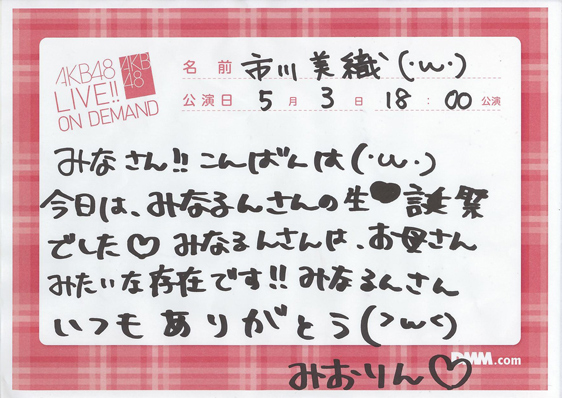 AKB48
LIVE!!
ON DEMAND
AKB
48
名前 市川美織(・ω・)
公演日 5月3日 18:00公演
みなさん!!こんばんは(・ω・)
今日は、みなるんさんの生♥誕祭
でした♡みなるんさんは、お母さん
みたいな存在です!!みなるんさん
いつもありがとう(>ω<)
みおりん♡
DMM.com